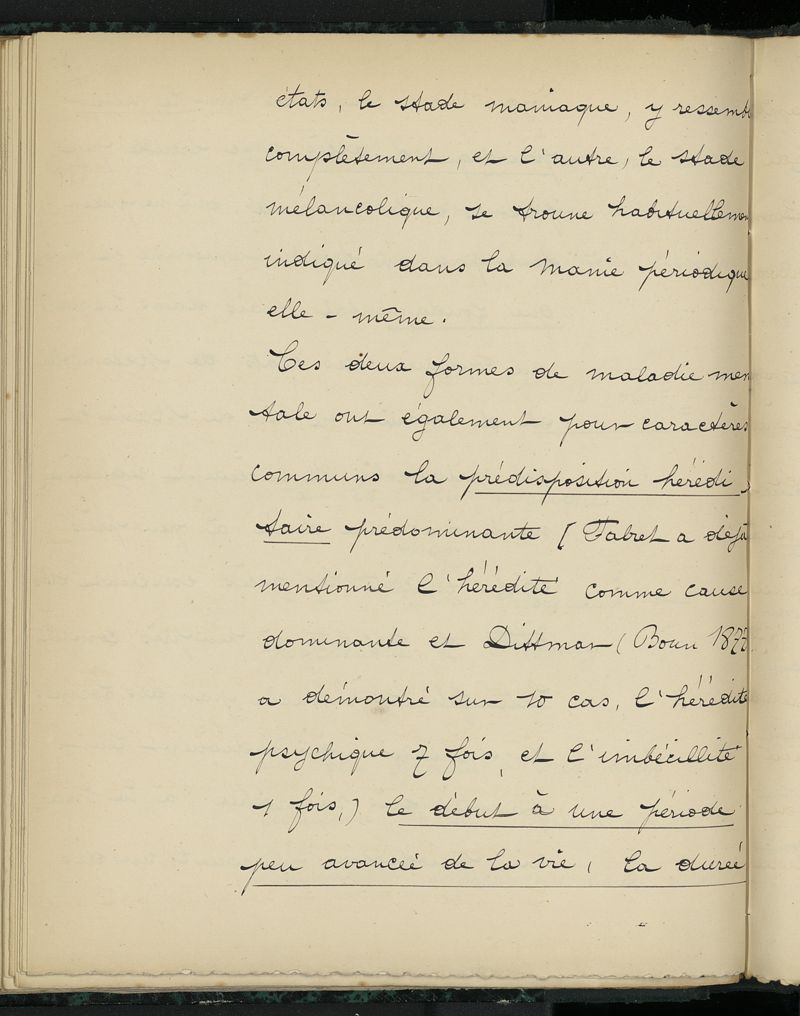 états, le stade maniaque, y ressemb
complètement, et l'autre, le stade
mélancolique, se trouve habituellemen
indiqué dans la Manie périodique
elle-même.
Ces deux formes de maladie men
tale ont également pour caractères
communs la prédisposition hérédi
taire prédominante [ Falret a déjà
mentionné l'hérédité comme cause
dominante et Dittmar (Bonn 1877
a démontré sur 10 cas, l'hérédité
psychique 7 fois, et l'imbécillité
1 fois,) le début à une période
peu avanceé de la vie, la dureé